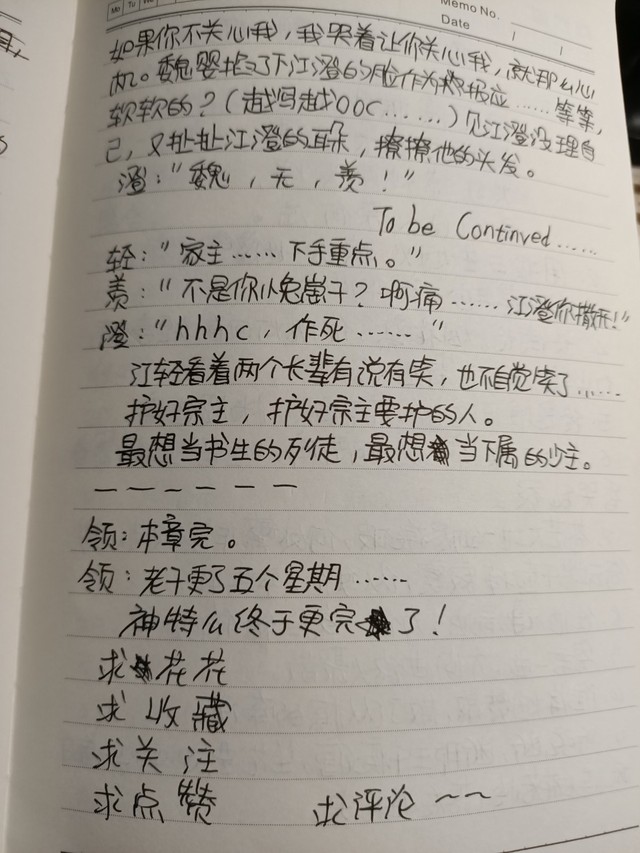 Mo Tu We
Memo No.
Date / /
如果你不关心我，我哭着让你关心我，就那么心
机。魏婴掐了下江澄的脸作为报应……等等，
软软的？（越写越OOC……）见江澄没理自
己，又扯扯江澄的耳朵，撩撩他的头发。
澄："魏，无，羡！"
To be Continved……
轻："家主……下手重点。"
羡："不是你小兔崽子？啊痛……江澄你撒开！"
澄："hhhc，作死……"
江轻看着两个长辈有说有笑，也不自觉笑了……
护好宗主，护好宗主要护的人。
最想当书生的歹徒，最想当下属的少主。
— — — — — —
领：本章完。
领：老子更了五个星期……
神特么终于更完了！
求花花
求收藏
求关注
求点赞 求评论~~